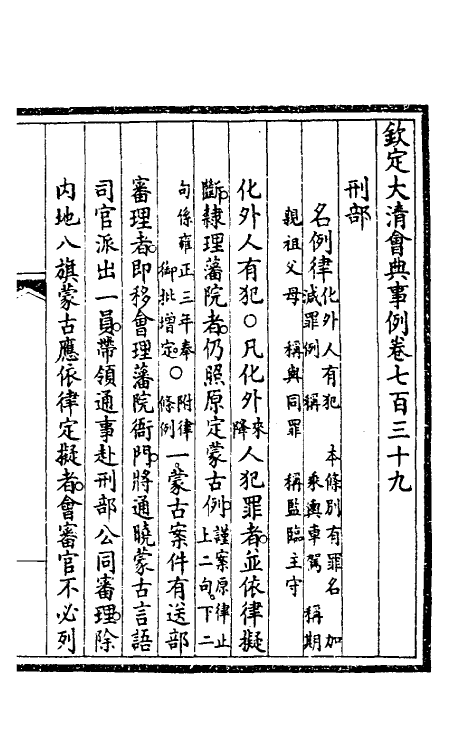 欽定大清會典事例卷七百三十九
刑部
名例律化外人有犯 本條別有罪名 加
減罪例 稱乘輿車駕 稱期
親祖父母 稱與同罪 稱監臨主守
化外人有犯○凡化外來降人犯罪者並依律擬
斷隸理藩院者仍照原定蒙古例謹案原律止上二句下二
句係雍正三年奉
御批增定○附律條例一蒙古案件有送部
審理者即移會理藩院衙門將通曉蒙古言語
司官派出一員帶領通事赴刑部公同審理除
內地八旗蒙古應依律定擬者會審官不必列